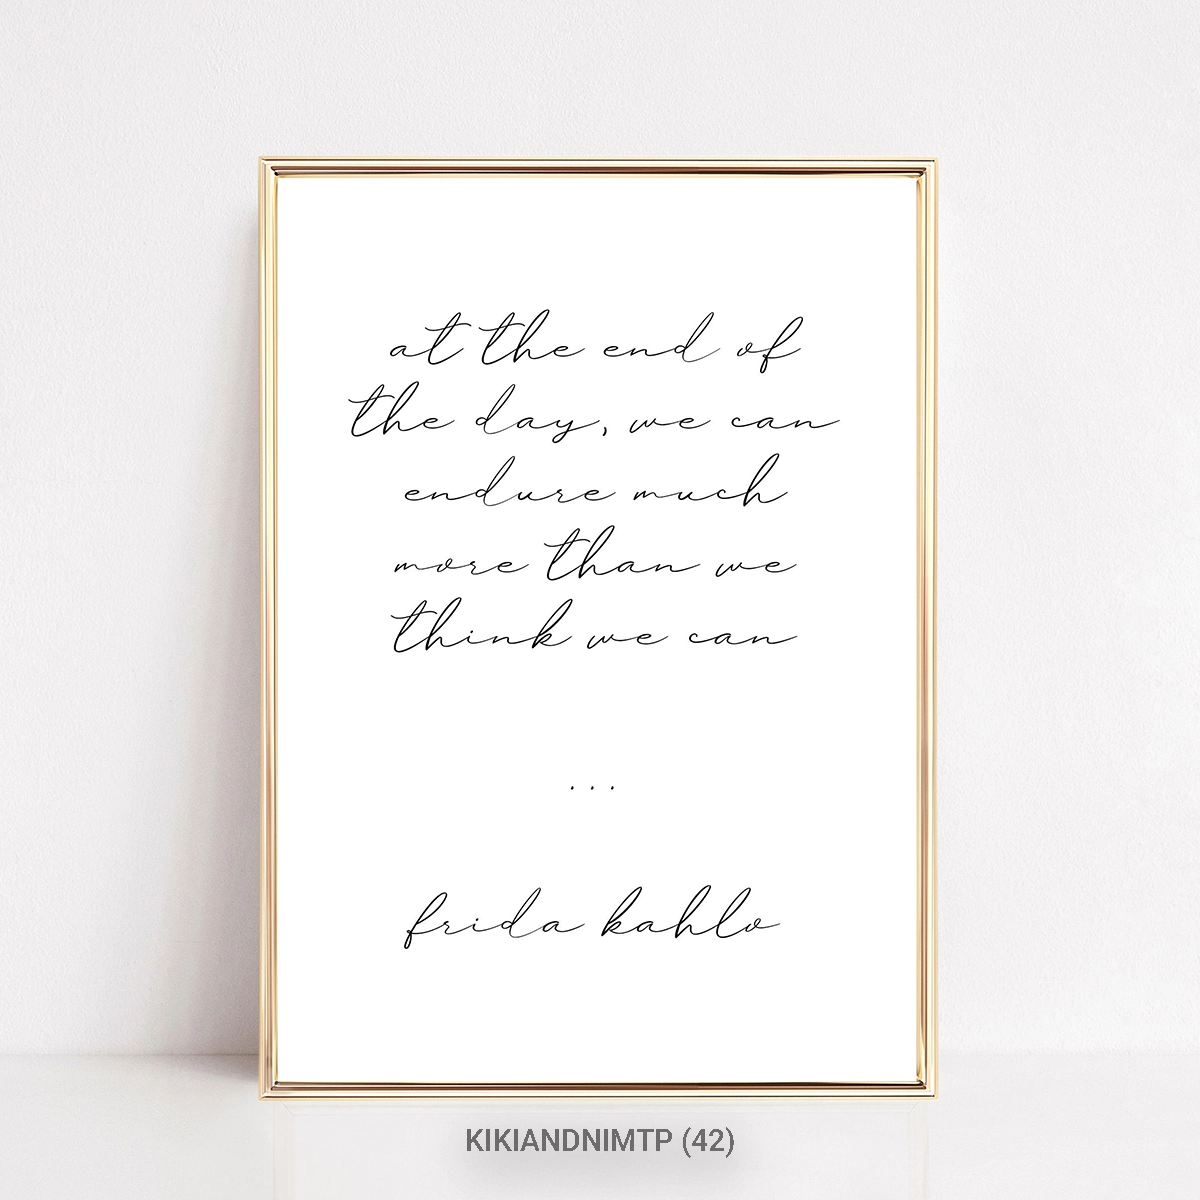 at the end of
the day, we can
endure much
more than we
think we can
...
frida kahlo
KIKIANDNIMTP (42)